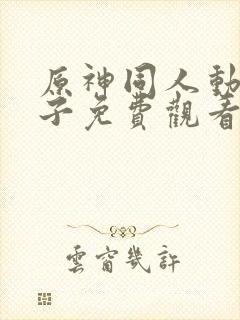 原神同人動
子免費觀看
雲窗幾許